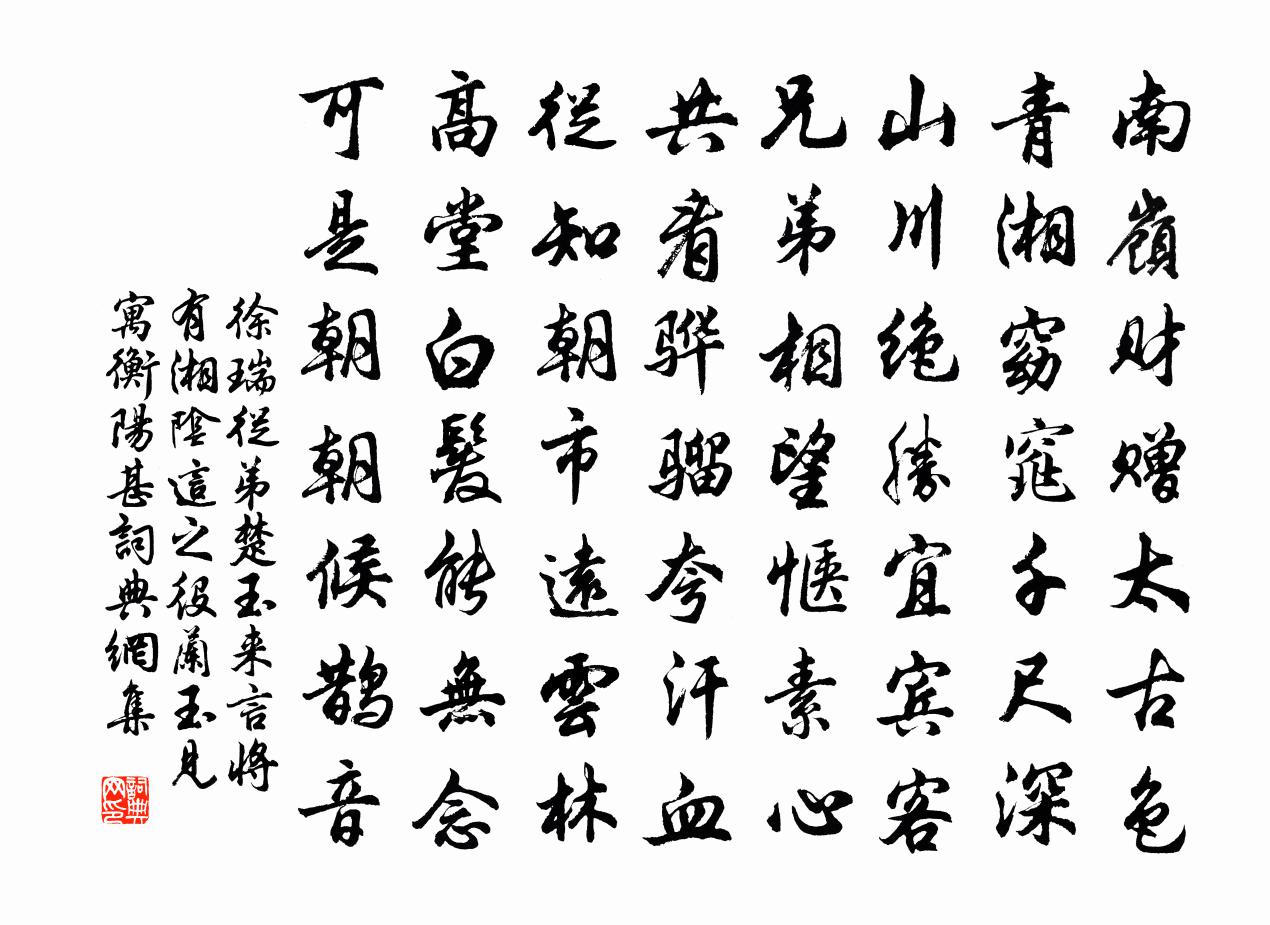 南嶺财赠太古色
青湘窈窕千尺深
山川绝勝宜宾客
兄弟相望惬素心
共看骅骝夸汗血
從知朝市遠雲林
高堂白髮能無念
可是朝朝候鹊音
徐瑞從弟楚玉来言將
有湘陰這之役蘭玉見
寓衡陽甚詞典網集
詞典
网印